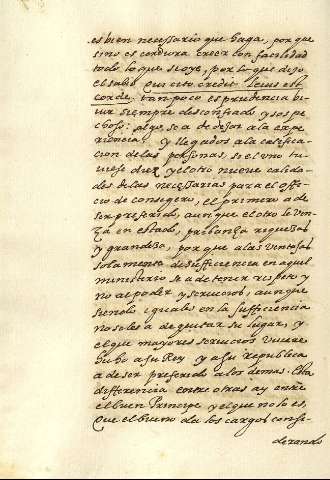 es bien necessario que haga, por que
sino es cordura creer con facilidad
todo lo que se oye, por lo que dijo
el sabio qui cito credit leuis est
corde, tampoco es prudencia bi-
uir siempre desconfiado y sospe
choso: algo se a de dejar a la expe
riencia: y llegados a la calificaci
on de las personas, si el uno tu
uiese diez y el otro nueve calida-
des de las necessarias para el offi-
cio de consegero, el primero a de
ser preferido, aunque el otro le ven-
za en estado, probanza riquezas
y grandeza, por que a las ventajas
solamente de sufficiencia en aquel
ministerio se a de tener respeto y
no al poder y seruicios, aunque
siendo iguales en la sufficiencia
no se les a de quitar su lugar, y
el que mayores seruicios uuiere
hecho a su Rey y a su republica
a de ser preferido a los demas. Otra
differencia entre otras ay entre
el buen Principe y el que no lo es,
Que el bueno da los cargos consi-
derando